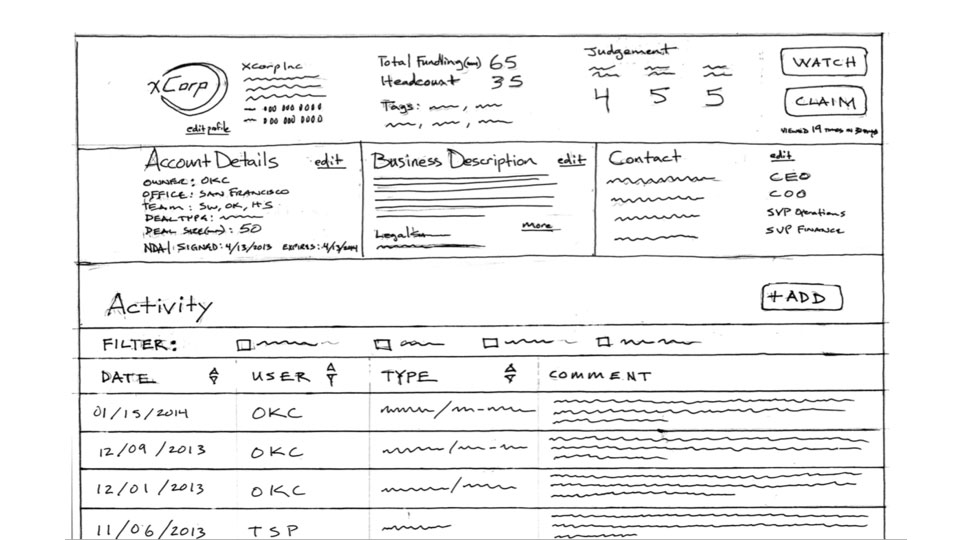 xCorp
xCorp Inc
edit profile
Total Funding(mm) 65
Headcount 35
Tags:
Judgement
4 5 5
WATCH
CLAIM
VIEWED 19 TIMES IN 30 DAYS
Account Details edit
OWNER: OKC
OFFICE: SAN FRANCISCO
TEAM: SW, OK, HS
DEAL TYPE:
DEAL SIZE(mm): 50
NDA: SIGNED: 4/13/2013 EXPIRES: 4/13/2014
Business Description edit
more
Contact edit
CEO
COO
SVP Operations
SVP FINANCE
Activity
+ADD
FILTER:
DATE USER TYPE COMMENT
01/15/2014 OKC
12/09/2013 OKC
12/01/2013 OKC
11/06/2013 TSP